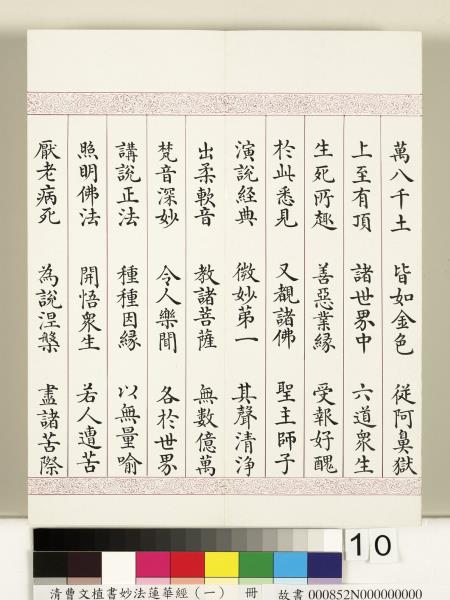 萬八千土 皆如金色 從阿鼻獄
上至有頂 諸世界中 六道衆生
生死所趣 善惡業緣 受報好醜
於此悉見 又覩諸佛 聖主師子
演說經典 微妙第一 其聲清淨
出柔軟音 教諸菩薩 無數億萬
梵音深妙 令人樂聞 各於世界
講說正法 種種因緣 以無量喻
照明佛法 開悟衆生 若人遭苦
厭老病死 為說涅槃 盡諸苦際
10
清曹文植書妙法蓮華經(一) 冊 故書 000852N000000000